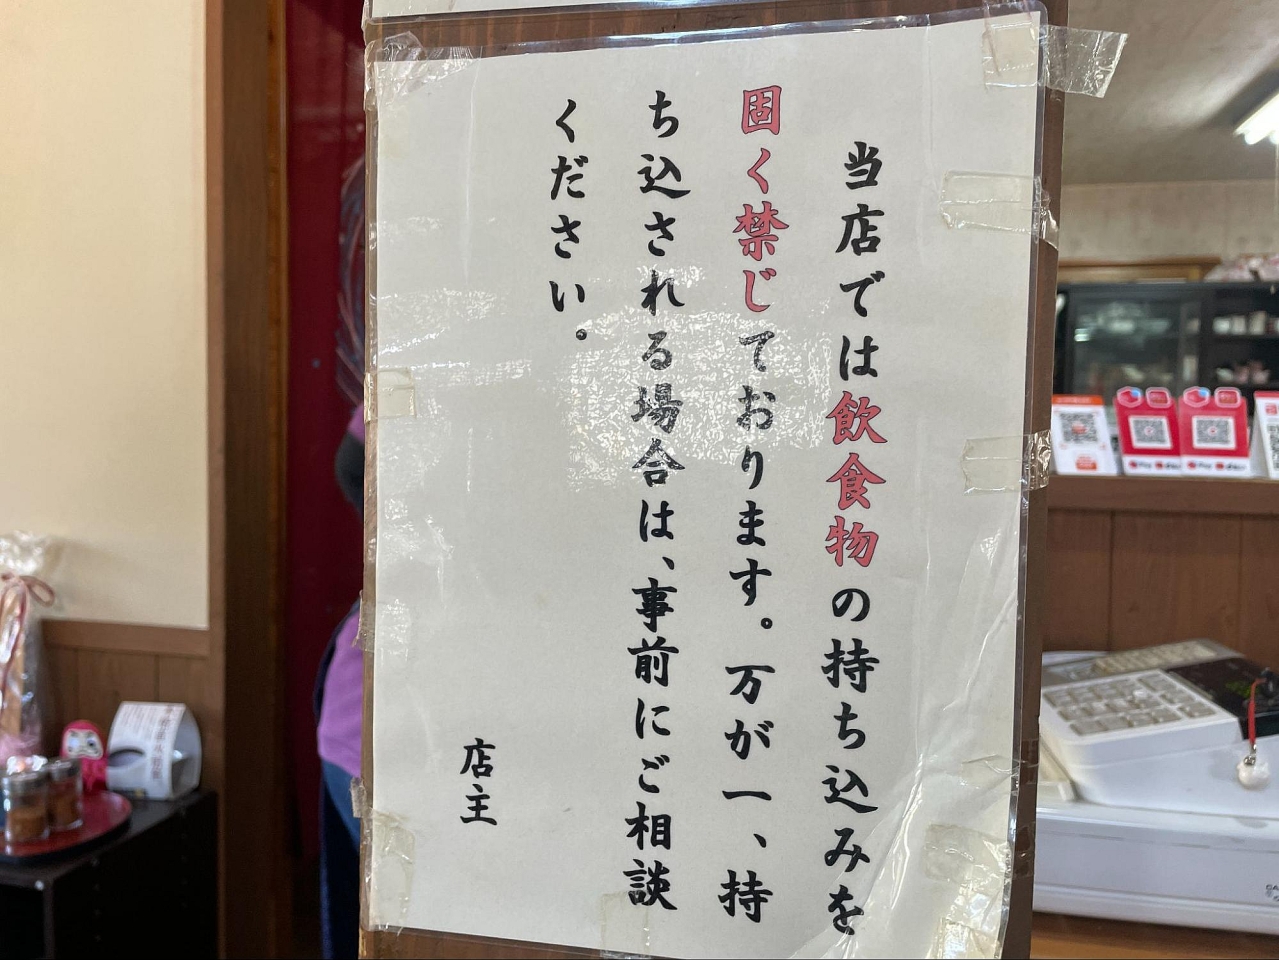 当店では飲食物の持ち込みを
固く禁じております。万が一、持
ち込される場合は、事前にご相談
ください。
店主